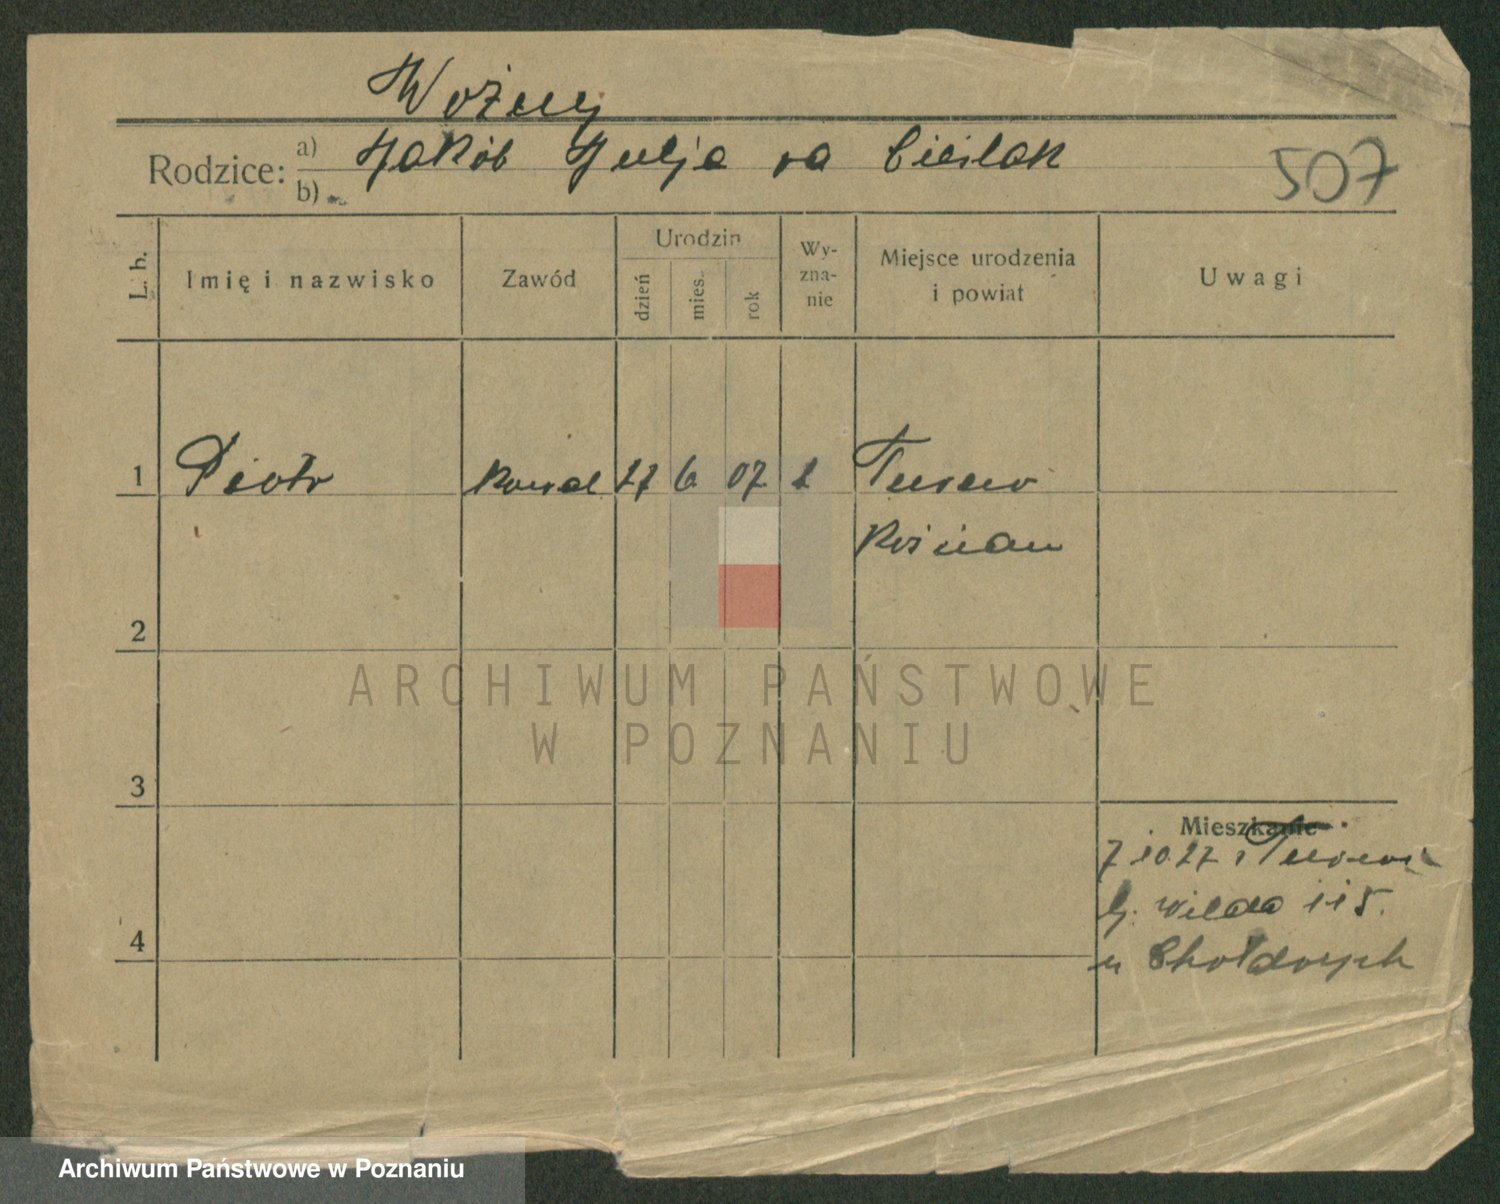 Woźny
Rodzice: a) Jakób Julja va Cieślak
b)
507
L. b.
Imię i nazwisko
Zawód
Urodzin
dzień
mies.
rok
Wy-
zna-
nie
Miejsce urodzenia
i powiat
Uwagi
1 Piotr kowal 27 6 07
2
3
4
Mieszkanie
7 10 27
G. Wilda 115.
u
ARCHIWUM PAŃSTWOWE
W POZNANIU
Archiwum Państwowe w Poznaniu